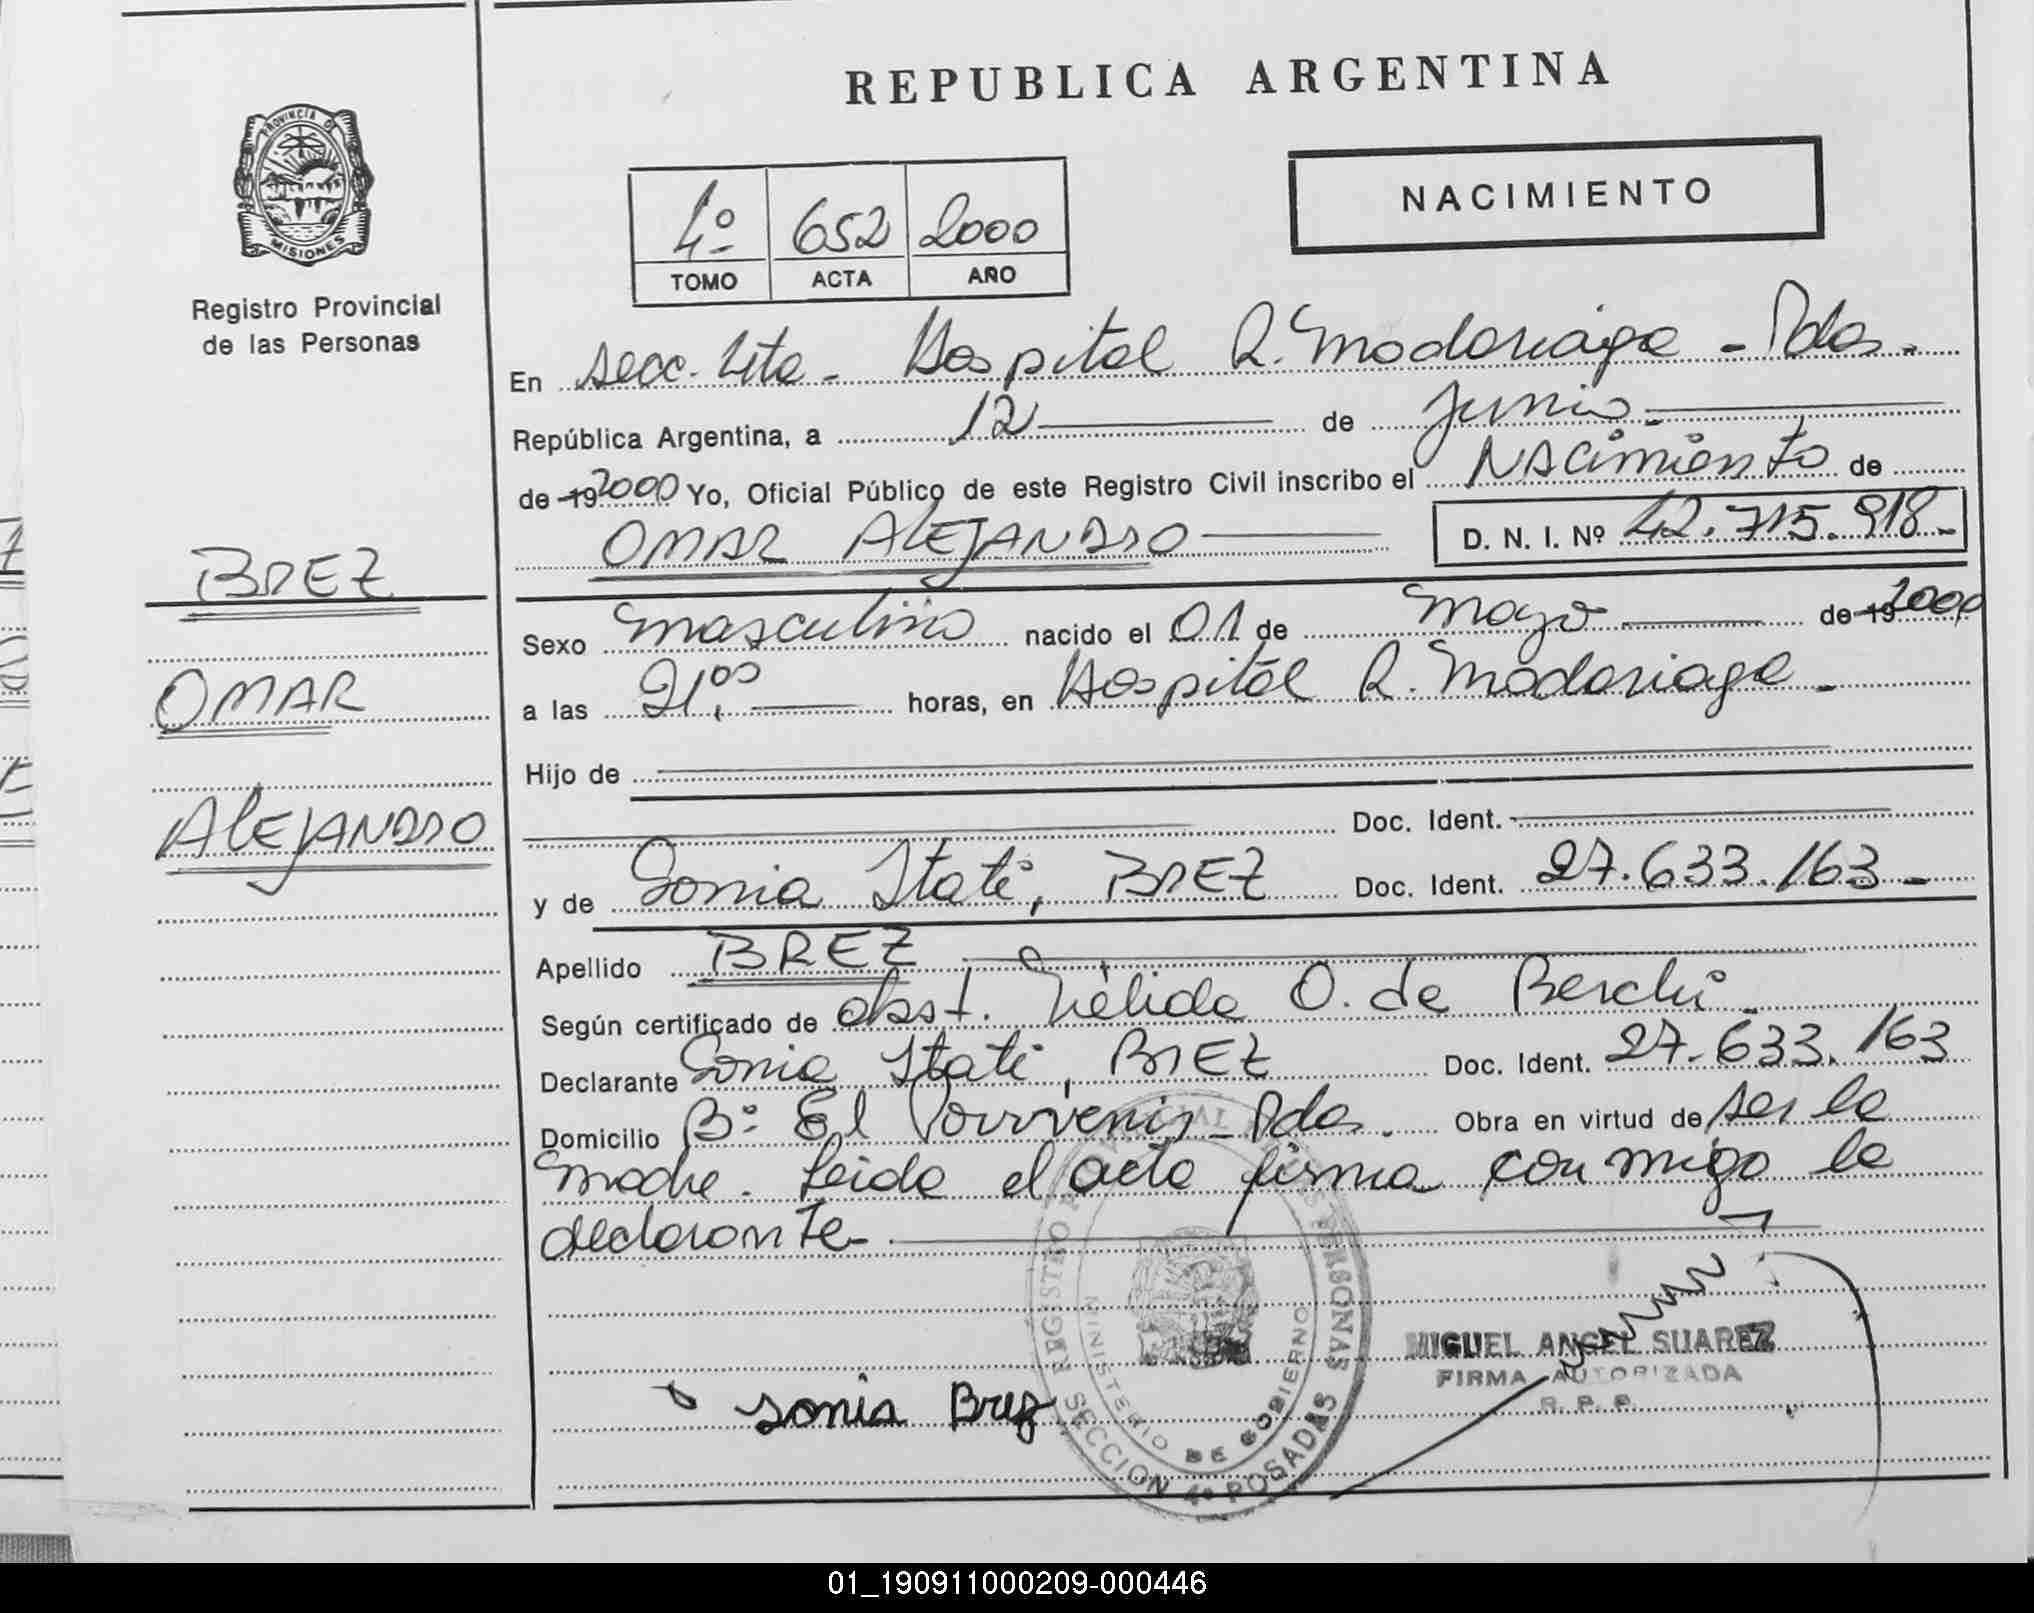 REPUBLICA ARGENTINA
PROVINCIA DE
MISIONES
Registro Provincial
de las Personas
4º 652 2000
TOMO ACTA AÑO
NACIMIENTO
En secc. 4ta. Hospital R. Madariaga - Pdas.
República Argentina, a 12 de Junio
de 19 2000 Yo, Oficial Público de este Registro Civil inscribo el Nacimiento de
OMAR ALEJANDRO D. N. I. Nº 42.715.918.-
BREZ
OMAR
ALEJANDRO
Sexo masculino nacido el 01 de Mayo de 19 2000
a las 21,00 horas, en Hospital R. Madariaga.
Hijo de
Doc. Ident.
y de Sonia Itati, BREZ Doc. Ident. 27.633.163.-
Apellido BREZ
Según certificado de obst. Nélida O. de Berchi
Declarante Sonia Itati, BREZ Doc. Ident. 27.633.163
Domicilio Bº El Porvenir - Pdas. Obra en virtud de ser la
madre. Leida el acta firma conmigo la
declarante.
REGISTRO PROVINCIAL DE LAS PERSONAS
MINISTERIO DE GOBIERNO
SECCION 4ª POSADAS
MIGUEL ANGEL SUAREZ
FIRMA AUTORIZADA
R. P. P.
Sonia Brez
01_190911000209-000446